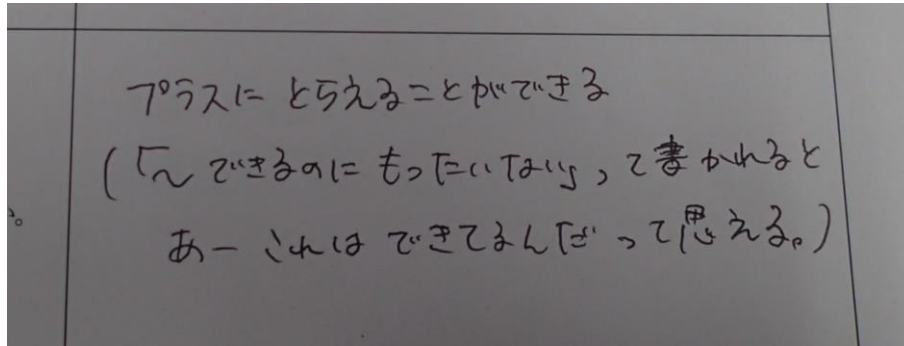 プラスに とらえることができる
(「〜できるのに もったいない」って書かれると
あー これは できてるんだって思える。)